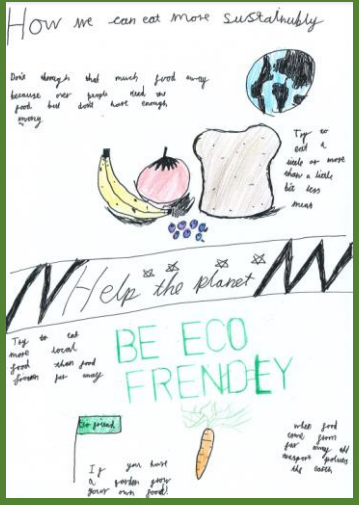 How we can eat more sustainubly
Don't through that much food away
because over people need the
food but don't have enough
money
Try to
eat a
little or more
than a little
bit less
meat
Help the planet
Try to eat
more local
food than food
from far away
BE ECO
FRENDLEY
Eco friend
If you have
a garden grow
your own food!
when food
come from
far away
transport polutes
the earth